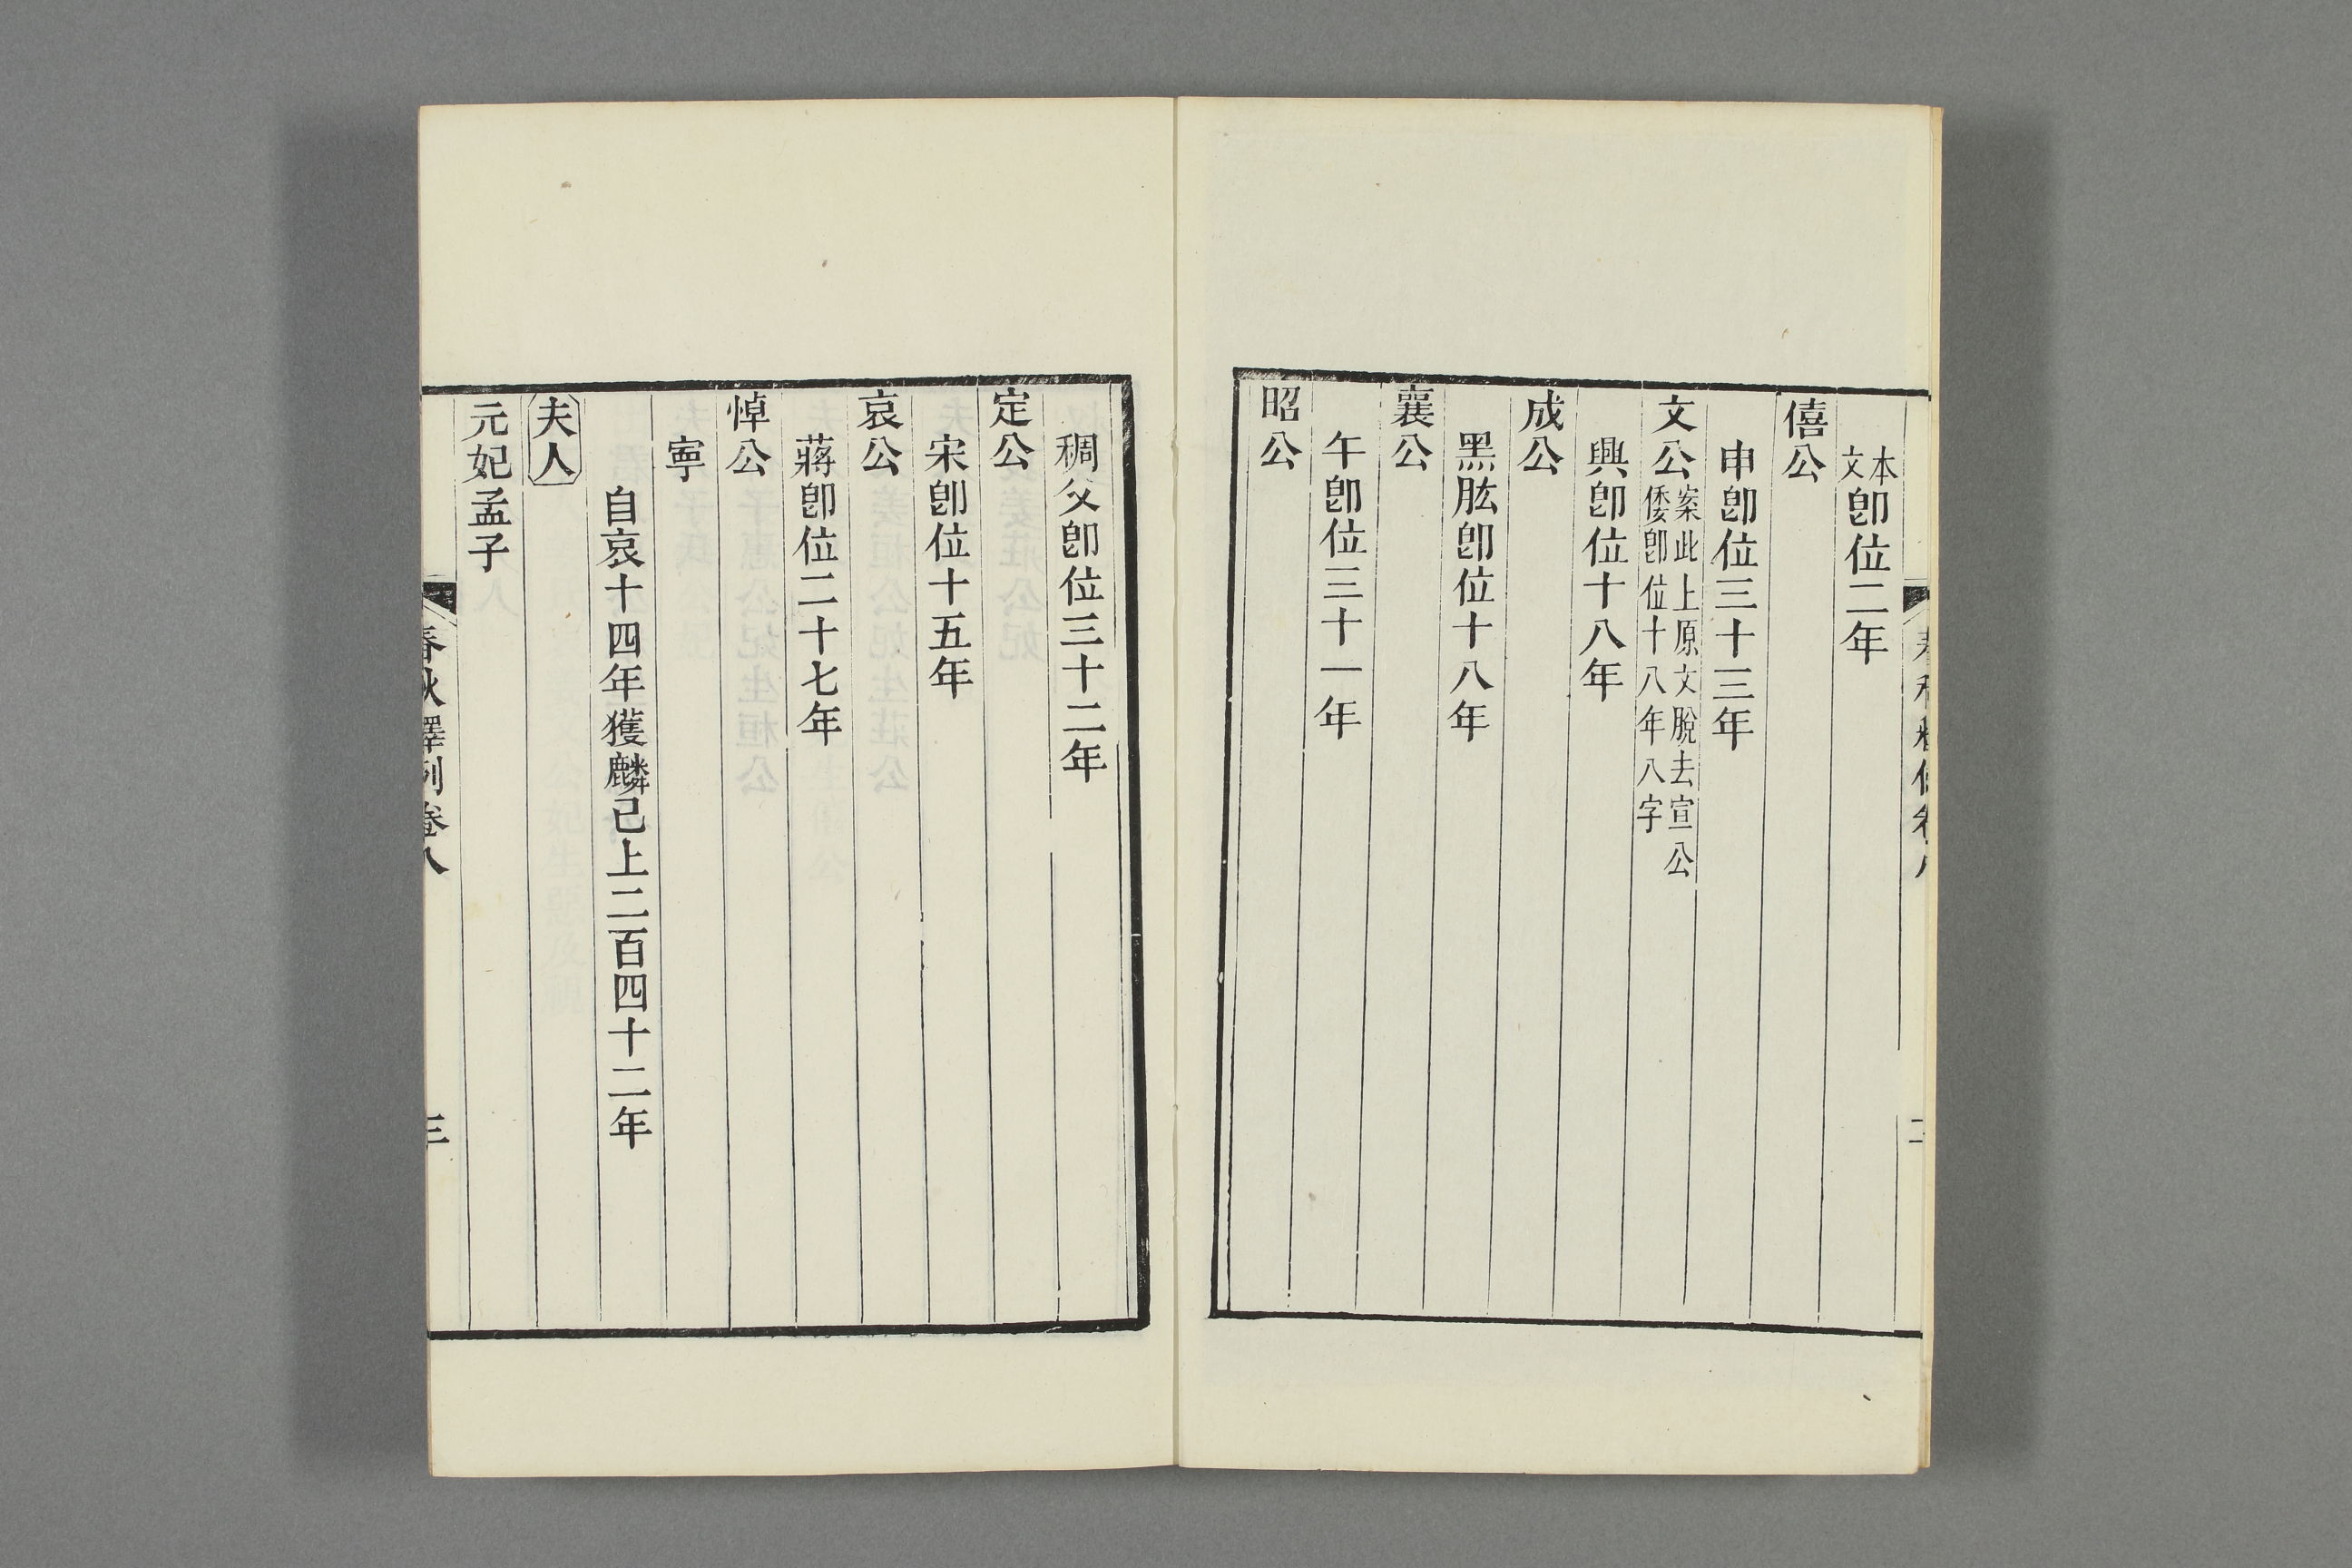 本文卽位二年
僖公
申卽位三十三年
文公案此上原文脫去宣公倭卽位十八年八字
興卽位十八年
成公
黑肱卽位十八年
襄公
午卽位三十一年
昭公
稠父卽位三十二年
定公
宋卽位十五年
哀公
蔣卽位二十七年
悼公
寧
自哀十四年獲麟已上二百四十二年
夫人
元妃孟子
春秋釋例卷八
三